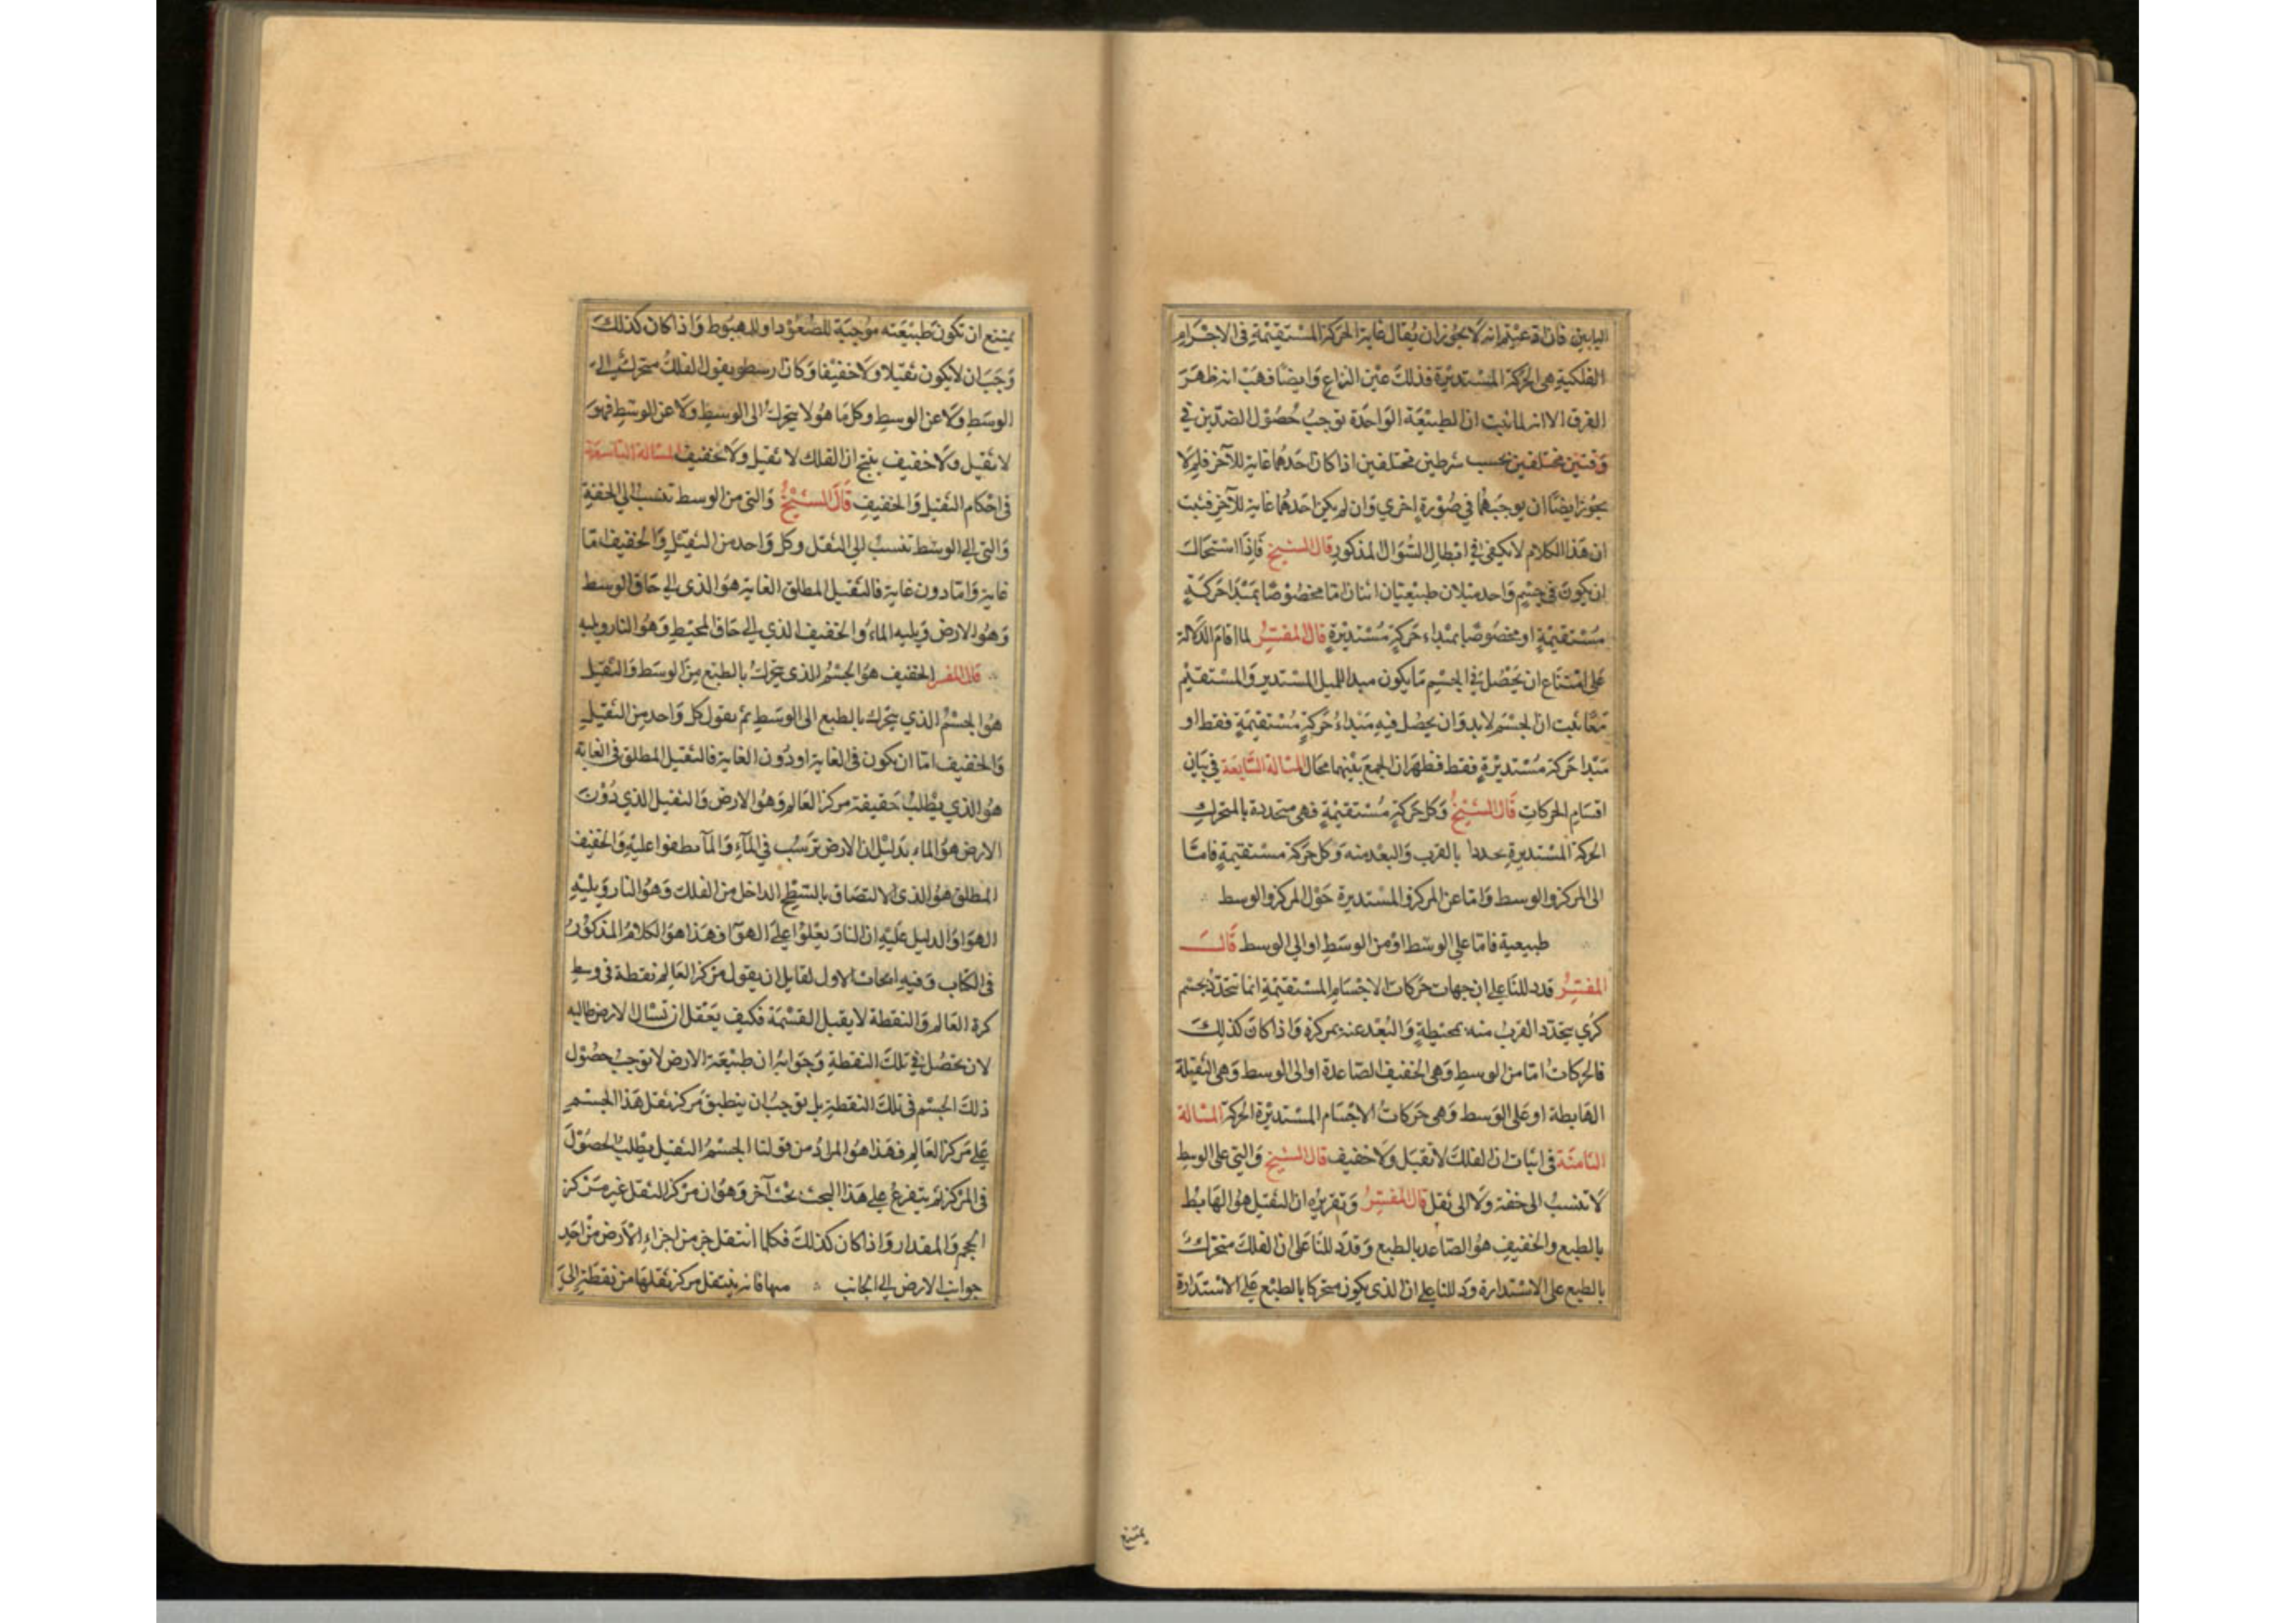 البابين فان ادعيتم انه لا يجوز ان يقال غاية الحركة المستقيمة في الاجرام
الفلكية هي الحركة المستديرة فذلك عين النزاع وايضا فهب انه ظهر
الفرق الا انه لما ثبت ان الطبيعة الواحدة توجب حصول الضدين في
وقتين مختلفين بحسب شرطين مختلفين اذا كان احدهما غاية للآخر فلم لا
يجوز ايضا ان يوجبهما في صورة اخرى وان لم يكن احدهما غاية للآخر فثبت
ان هذا الكلام لا يكفي في ابطال السؤال المذكور قال الشيخ فاذا استحال
ان يكون في جسم واحد ميلان طبيعيان اثنان اما مخصوصا بمبدا حركة
مستقيمة او مخصوصا بمبداء حركة مستديرة قال المفسر لما اقام الدلالة
على امتناع ان يحصل في الجسم ما يكون مبدا للميل المستدير والمستقيم
معا ثبت ان الجسم لا بد وان يحصل فيه مبداء حركة مستقيمة فقط او
مبدا حركة مستديرة فقط فظهر ان الجمع بينهما محال المسالة السابعة في بيان
اقسام الحركات قال الشيخ وكل حركة مستقيمة فهي متحددة بالمتحرك
الحركة المستديرة تحددا بالقرب والبعد منه وكل حركة مستقيمة فاما
الى المركز والوسط واما عن المركز والمستديرة حول المركز والوسط
طبيعية فاما على الوسط او من الوسط او الى الوسط قال
المفسر قد دللنا على ان جهات حركات الاجسام المستقيمة انما تتحدد بجسم
كري يتحدد القرب منه بمحيطة والبعد عنه بمركزه واذا كان كذلك
فالحركات اما من الوسط وهي الخفيف الصاعدة او الى الوسط وهي الثقيلة
الهابطة او على الوسط وهي حركات الاجسام المستديرة الحركة المسالة
الثامنة في اثبات ان الفلك لا ثقيل ولا خفيف قال الشيخ والتي على الوسط
لا تنسب الى خفة ولا الى ثقل قال المفسر وتقريره ان الثقيل هو الهابط
بالطبع والخفيف هو الصاعد بالطبع وقد دللنا على ان الفلك متحرك
بالطبع على الاستدارة ود للنا على ان الذي يكون متحركا بالطبع على الاستدارة
يمتنع
يمتنع ان تكون طبيعته موجبة للصعود او للهبوط واذا كان كذلك
وجب ان لا يكون ثقيلا ولا خفيفا وكان ارسطو يقول الفلك متحرك الى
الوسط ولا عن الوسط وكل ما هو لا يتحرك الى الوسط ولا عن الوسط فهو
لا ثقيل ولا خفيف ينتج ان الفلك لا ثقيل ولا خفيف المسالة التاسعة
في احكام الثقيل والخفيف قال الشيخ والتي من الوسط تنسب الى الخفة
والتي الى الوسط تنسب الى الثقل وكل واحد من الثقيل والخفيف اما
غاية واما دون غاية فالثقيل المطلق الغاية هو الذي الى حاق الوسط
وهو الارض ويليه الماء والخفيف الذي الى حاق المحيط وهو النار ويليه
قال المفسر الخفيف هو الجسم الذي يتحرك بالطبع من الوسط والثقيل
هو الجسم الذي يتحرك بالطبع الى الوسط ثم يقول كل واحد من الثقيل
والخفيف اما ان يكون في الغاية او دون الغاية فالثقيل المطلق في الغاية
هو الذي يطلب حقيقة مركز العالم وهو الارض والثقيل الذي دون
الارض هو الماء بدليل ان الارض ترسب في الماء والماء يطفوا عليه والخفيف
المطلق هو الذي الالتصاق بالسطح الداخل من الفلك وهو النار ويليه
الهوا والدليل عليه ان النار يعلوا على الهوا فهذا هو الكلام المذكور
في الكتاب وفيه ابحاث الاول لقايل ان يقول مركز العالم نقطة في وسط
كرة العالم والنقطة لا يقبل القسمة فكيف يعقل ان تسال الارض طالبه
لان يحصل في تلك النقطة وجوابه ان طبيعة الارض لا توجب حصول
ذلك الجسم في تلك النقطة بل توجب ان ينطبق مركز ثقل هذا الجسم
على مركز العالم فهذا هو المراد من قولنا الجسم الثقيل يطلب الحصول
في المركز ثم يتفرع على هذا البحث بحث آخر وهو ان مركز الثقل غير مركز
الحجم والمقدار واذا كان كذلك فكلما انتقل جزء من اجزاء الارض من احد
جوانب الارض الى الجانب منها فانه ينتقل مركز ثقلها من نقطة الى